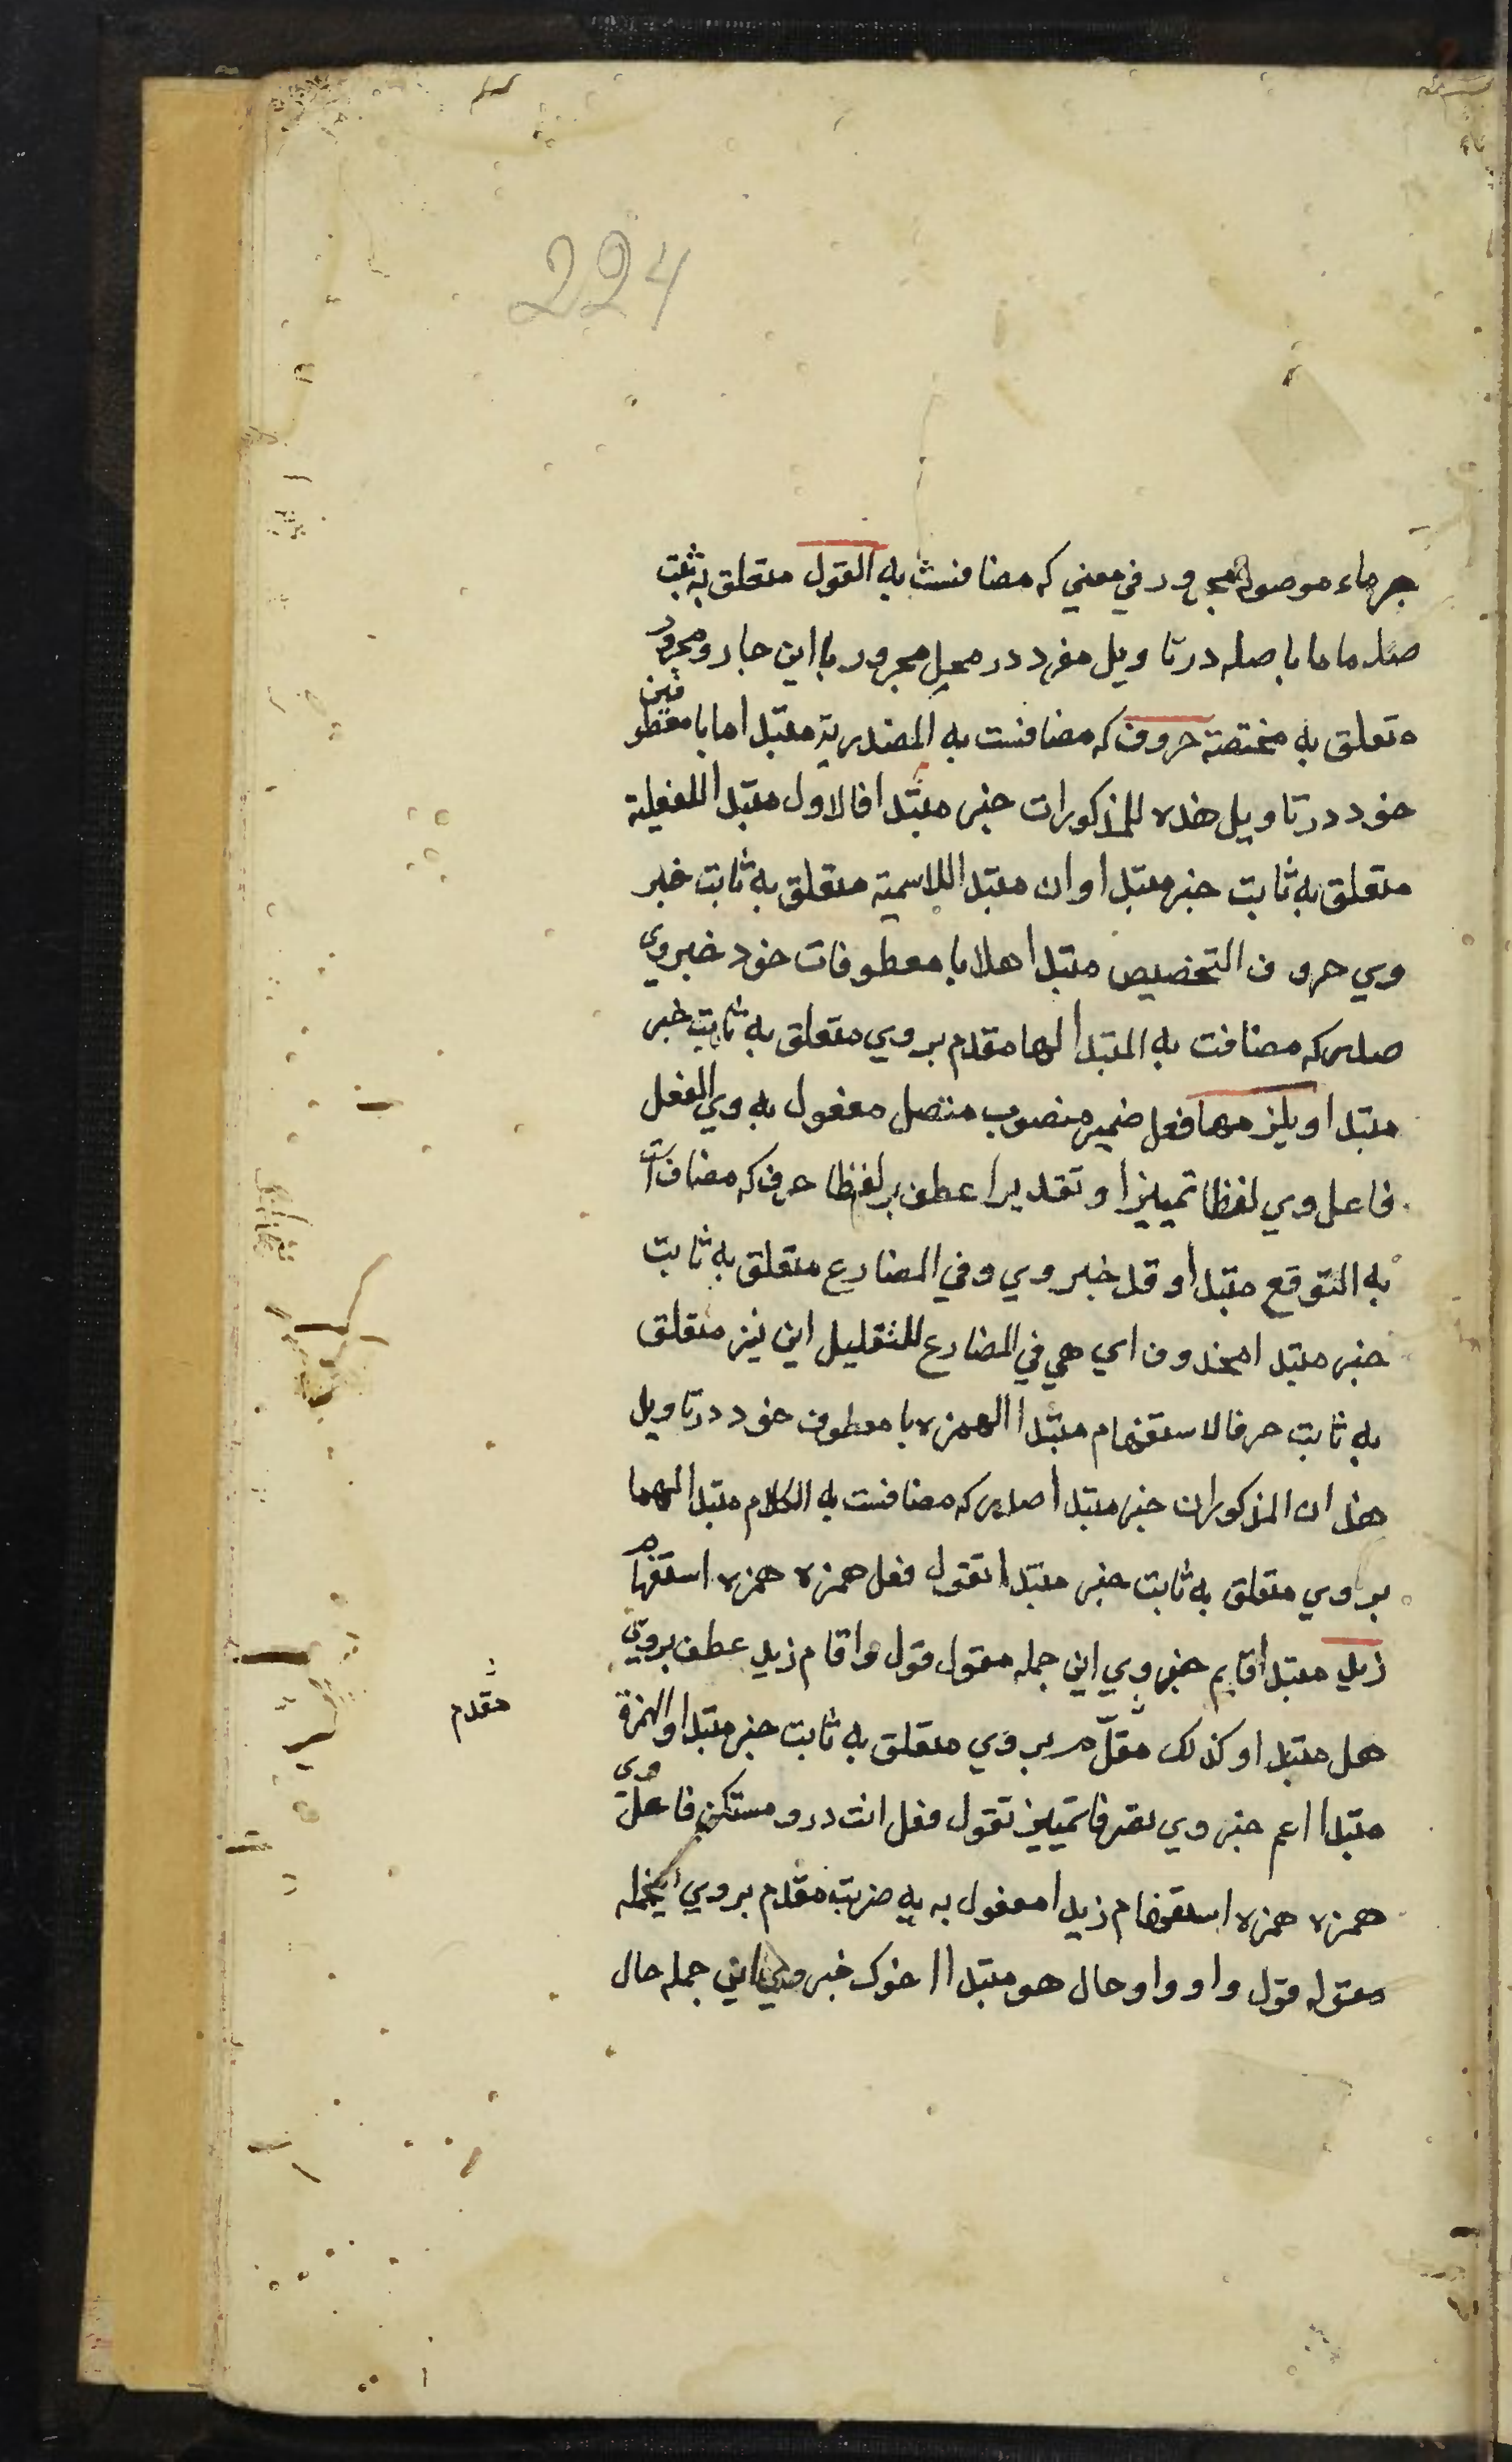 224
جر ماء موصوله مجرور في معني كه مضافست به القول متعلق به ثبت
صله ما ما با صله در تاويل مفرد در محل مجرور با اين جار و مجرور
متعلق به مختصة حروف كه مضافست به المصدرية مبتدا ما با معطوفين
خود در تاويل هذه المذكورات خبر مبتدا فالاول مبتدا للفعلية
متعلق به ثابت خبر مبتدا وان مبتدا للاسمية متعلق به ثابت خبر
وي حروف التحضيض مبتدا هلا با معطوفات خود خبر وي
صدر كه مضافت به المبتدا لها مقدم بر وي متعلق به ثابت خبر
مبتدا ويلزمها فعل ضمير منصوب متصل مفعول به وي الفعل
فاعل وي لفظا تمييز او تقديرا عطف بر لفظا حرف كه مضاف است
به التوقع مبتدا وقد خبر وي وفي المضارع متعلق به ثابت
خبر مبتدا محذوف اي هي في المضارع للتقليل اين نيز متعلق
به ثابت حرفا الاستفهام مبتدا الهمزه با معطوف خود در تاويل
هذان المذكوران خبر مبتدا صدر كه مضافست به الكلام مبتدا لهما
بر وي متعلق به ثابت خبر مبتدا تقول فعل همزه همزه استفهام
زيد مبتدا قايم خبر وي اين جمله مقول قول واقام زيد عطف بر وي
هل مبتدا وكذلك مقدم بر وي متعلق به ثابت خبر مبتدا والهمزة
مقدم
مبتدا اعم خبر وي تصرفا تمييز تقول فعل انت درو مستكن فاعل وي
همزه همزه استفهام زيدا مفعول به به ضربت مقدم بر وي اينجمله
مقوله قول واو واو حال هو مبتدا اخوك خبر وي اين جمله حال